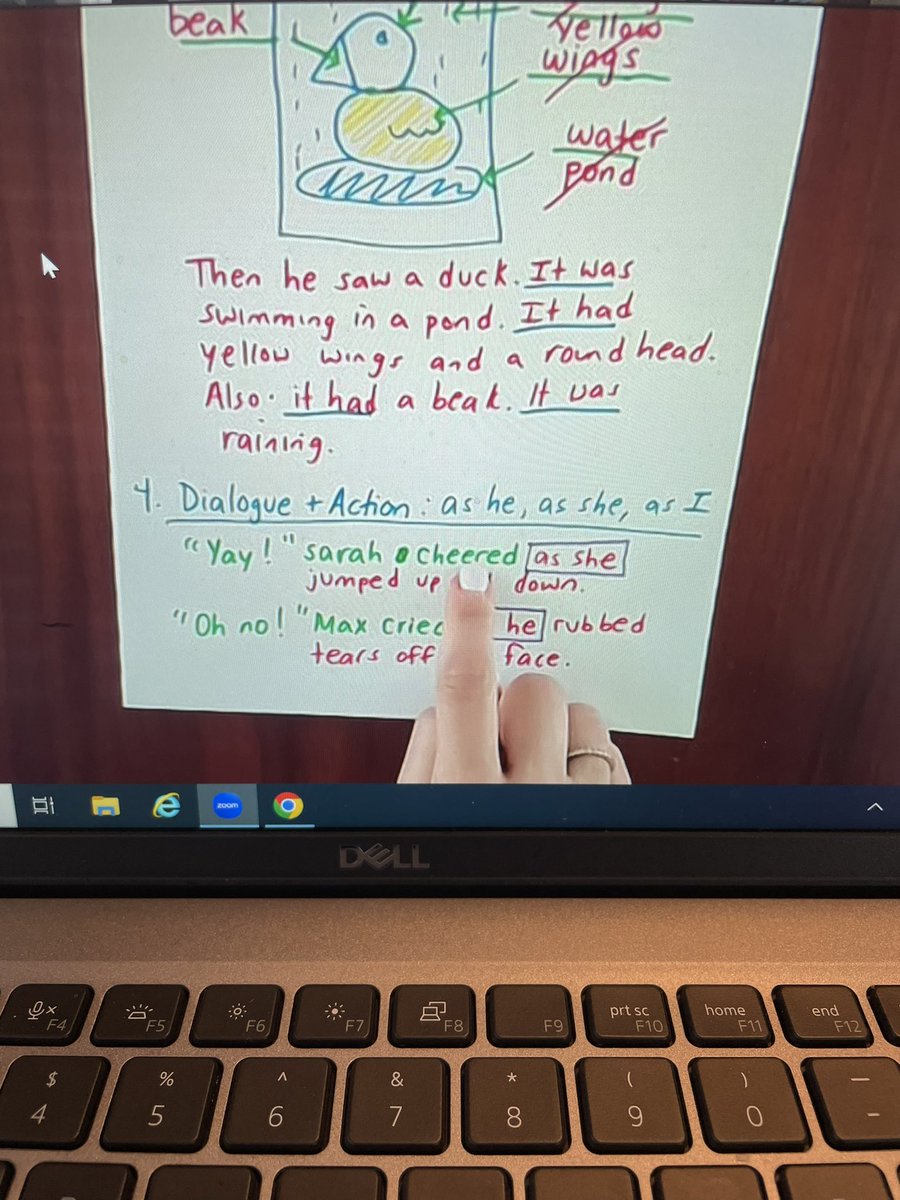 beak
yellow
wings
water
pond
Then he saw a duck. It was
swimming in a pond. It had
yellow wings and a round head.
Also. it had a beak. It was
raining.
4. Dialogue + Action: as he, as she, as I
"Yay!" sarah cheered as she
jumped up down.
"Oh no!" Max cried he rubbed
tears off face.
zoom
DELL
F4
F5
F6
F7
F8
F9
prt sc F10
home F11
end F12
$ % ^ & * ( ) —
4 5 6 7 8 9 0 -